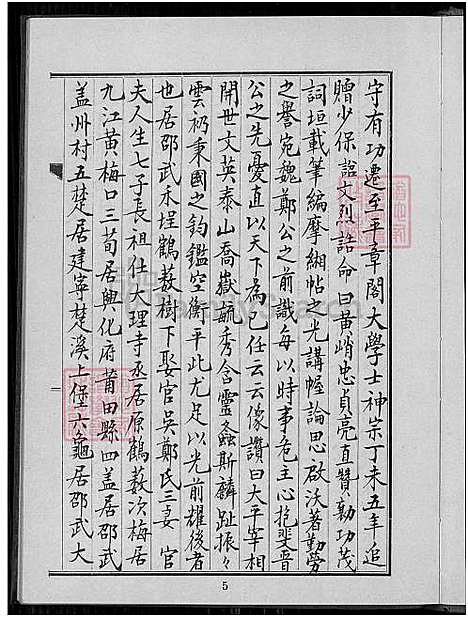 守有功遷至平章閣大學士神宗丁未五年追
贈少保諡文烈誥命曰黃峭忠貞亮直贊勷功茂
詞垣載筆編摩緗帖之光講幄論思啟沃著勤勞
之譽宛魏鄭公之前識每以時事危主心抱斐晉
公之先憂直以天下為己任云云像讚曰大平宰相
開世文英泰山喬嶽毓秀含靈螽斯麟趾振々
雲礽秉國之鈞鑑空衡平此尤足以光前耀後者
也居邵武禾埕鶴藪樹下娶官吳鄭氏三妻 官
夫人生七子長祖仕大理寺丞居原鶴藪次梅居
九江黃梅口三荀居興化府莆田縣四盖居邵武
盖州村五楚居建寧楚溪上堡六龜居邵武大
5